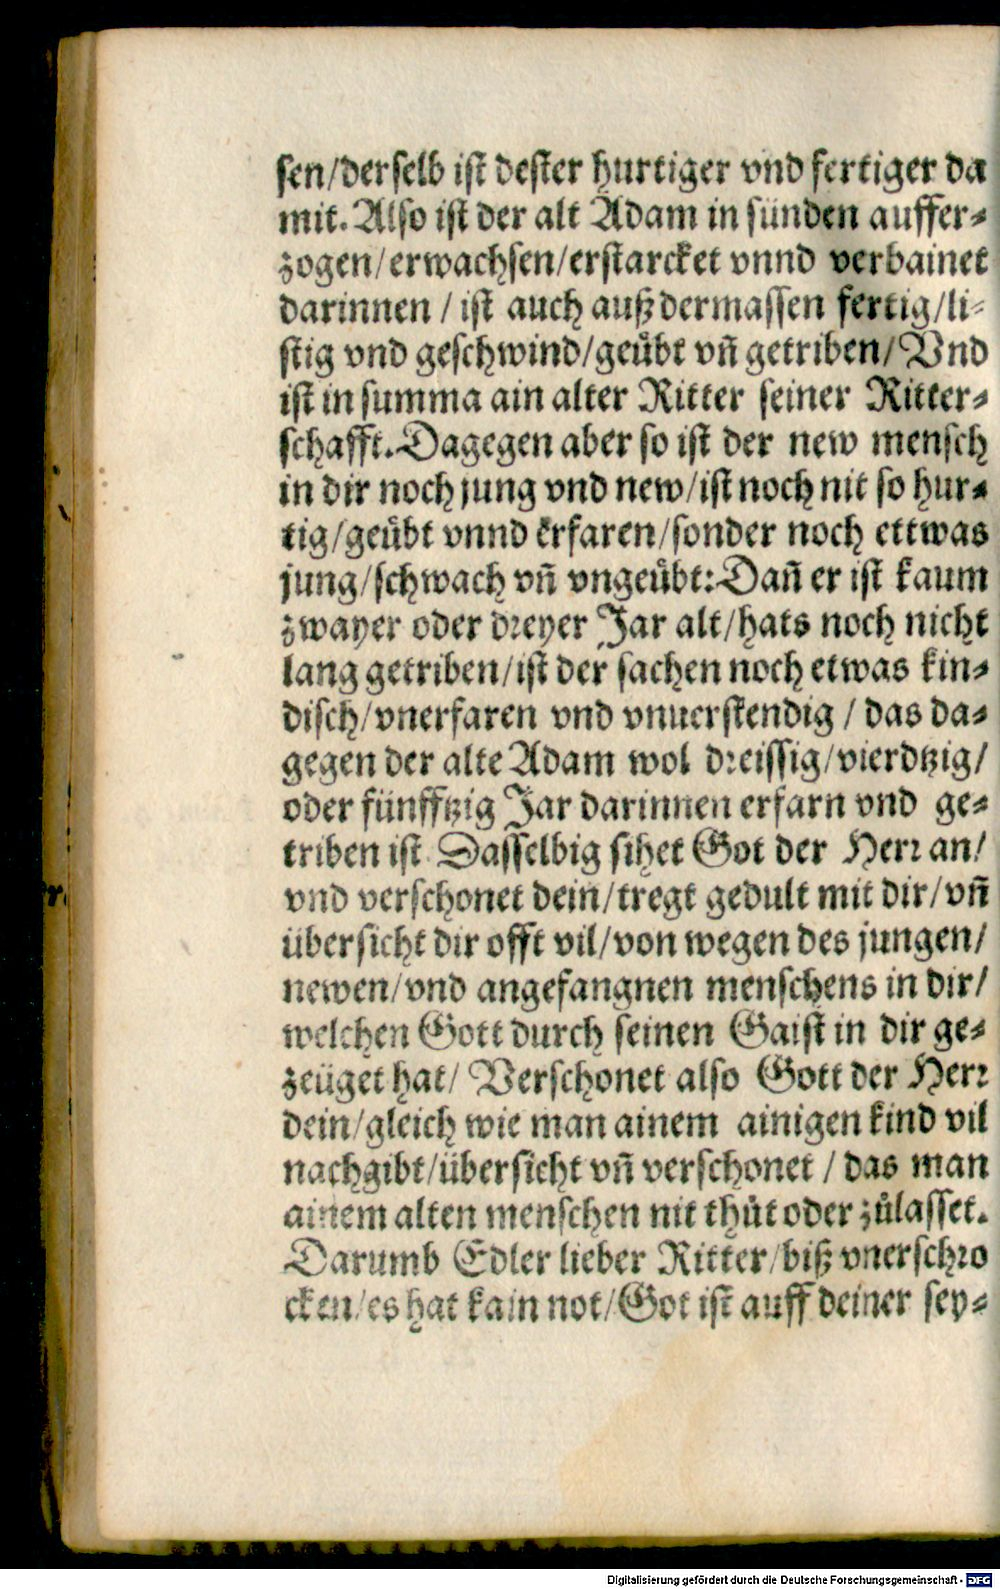 sen/derselb ist dester hurtiger vnd fertiger da
mit. Also ist der alt Adam in sünden auffer⸗
zogen/erwachsen/erstarcket vnnd verbainet
darinnen / ist auch außdermassen fertig/li⸗
stig vnd geschwind/geübt vñ getriben/ Vnd
ist in summa ain alter Ritter seiner Ritter⸗
schafft. Dagegen aber so ist der new mensch
in dir noch jung vnd new/ist noch nit so hur⸗
tig/geübt vnnd erfaren/sonder noch ettwas
jung/schwach vñ vngeübt: Dañ er ist kaum
zwayer oder dreyer Jar alt/hats noch nicht
lang getriben/ist der sachen noch etwas kin⸗
disch/vnerfaren vnd vnuerstendig / das da⸗
gegen der alte Adam wol dreissig/vierdtzig/
oder fünfftzig Jar darinnen erfarn vnd ge⸗
triben ist. Dasselbig sihet Got der Herr an/
vnd verschonet dein/tregt gedult mit dir/vñ
übersicht dir offt vil/von wegen des jungen/
newen/vnd angefangnen menschens in dir/
welchen Gott durch seinen Gaist in dir ge⸗
zeüget hat/ Verschonet also Gott der Herr
dein/gleich wie man ainem ainigen kind vil
nachgibt/übersicht vñ verschonet / das man
ainem alten menschen nit thůt oder zůlasset.
Darumb Edler lieber Ritter/biß vnerschro
cken/es hat kain not/Got ist auff deiner sey⸗
r.
Digitalisierung gefördert durch die Deutsche Forschungsgemeinschaft - DFG